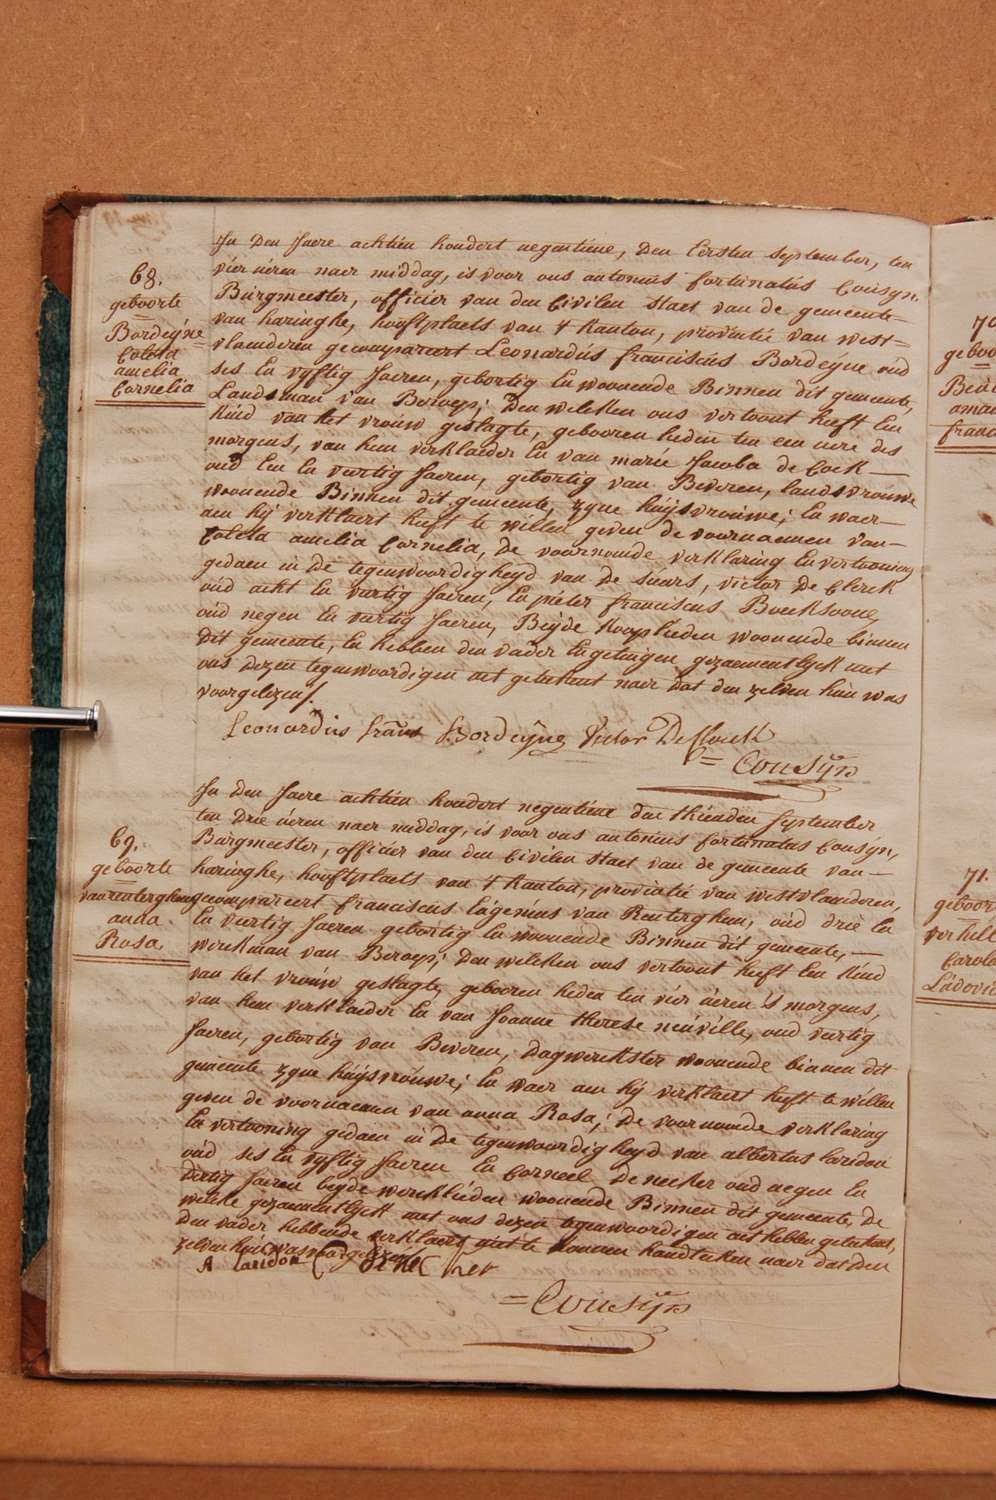 68.
geboorte
Bordeyne
Coleta
amelia
Cornelia
In den Jaere achtien hondert negentiene, den Eersten September, ten
vier uren naer middag, is voor ons antonius fortunatus Cousyn,
Burgmeester, officier van den Civilen staet van de gemeente
van haringhe, hooftplaets van 't kanton, provintie van west=
vlaenderen gecompareert Leonardus franciscus Bordeyne oud
ses en vyftig Jaeren, gebortig en woonende Binnen dit gemeente,
Landsman van Beroep; Den welken ons vertoont heeft een
kind van het vrouw geslagte, gebooren heden ten een uere des
morgens, van hem verklaeder en van marie Jacoba de Cock
oud een en veertig Jaeren, gebortig van Beveren, landsvrouwe
woonende Binnen dit gemeente, zyne huysvrouwe; en waer
aen hy verklaert heeft te willen geven de voornaemen van
Coleta amelia Cornelia, De voornoemde verklaring en vertooning
gedaen in de tegenwoordigheyd van de sieurs, victor De Clerck
oud acht en veertig Jaeren, en pieter franciscus Boecksoone
oud negen en veertig Jaeren, Beyde kooplieden woonende binnen
dit gemeente, en hebben den vader en getuigen gezaementlyck met
ons dezen tegenwoordigen act geteekent naer dat den zelven hun was
voorgelezen/.
Leonardus frans Bordeyne Victor De
= Cousyn
69.
geboorte
van renterghem
anna
Rosa
In den Jaere achtien hondert negentiene den thienden September
ten drie uren naer middag, is voor ons antonius fortunatus Cousyn,
Burgmeester, officier van den Civilen staet van de gemeente van
haringhe, hooftplaets van 't kanton, provintie van westvlaenderen,
gecompareert franciscus Eugenius van Renterghem, oud drie en
en veertig Jaeren gebortig en woonende Binnen dit gemeente,
werckman van Beroep; Den welken ons vertoont heeft een kind
van het vrouw geslagte, gebooren heden ten vier ueren 's morgens,
van hem verklaeder en van Joanne therese neuville, oud veertig
Jaeren, gebortig van Beveren, Dagwerckster woonende binnen dit
gemeente zyne huysvrouwe; en waer aen hy verklaert heeft te willen
geven de voornaemen van anna Rosa; De voornoemde verklaring
en vertooning gedaen in de tegenwoordigheyd van albertus laridon
oud ses en vyftig Jaeren en Corneel De necker oud negen en
dertig Jaeren beyde wercklieden woonende Binnen dit gemeente, de
welke gezaementlyck met ons dezen tegenwoordigen act hebben geteekent,
den vader hebbende verklaert niet te konnen handteeken naer dat den
zelven hun was voorgelezen
A laridon C
= Cousyn
70
geboo
Bed
ama
franc
71.
geboor
verhill
Carol
Ludovic